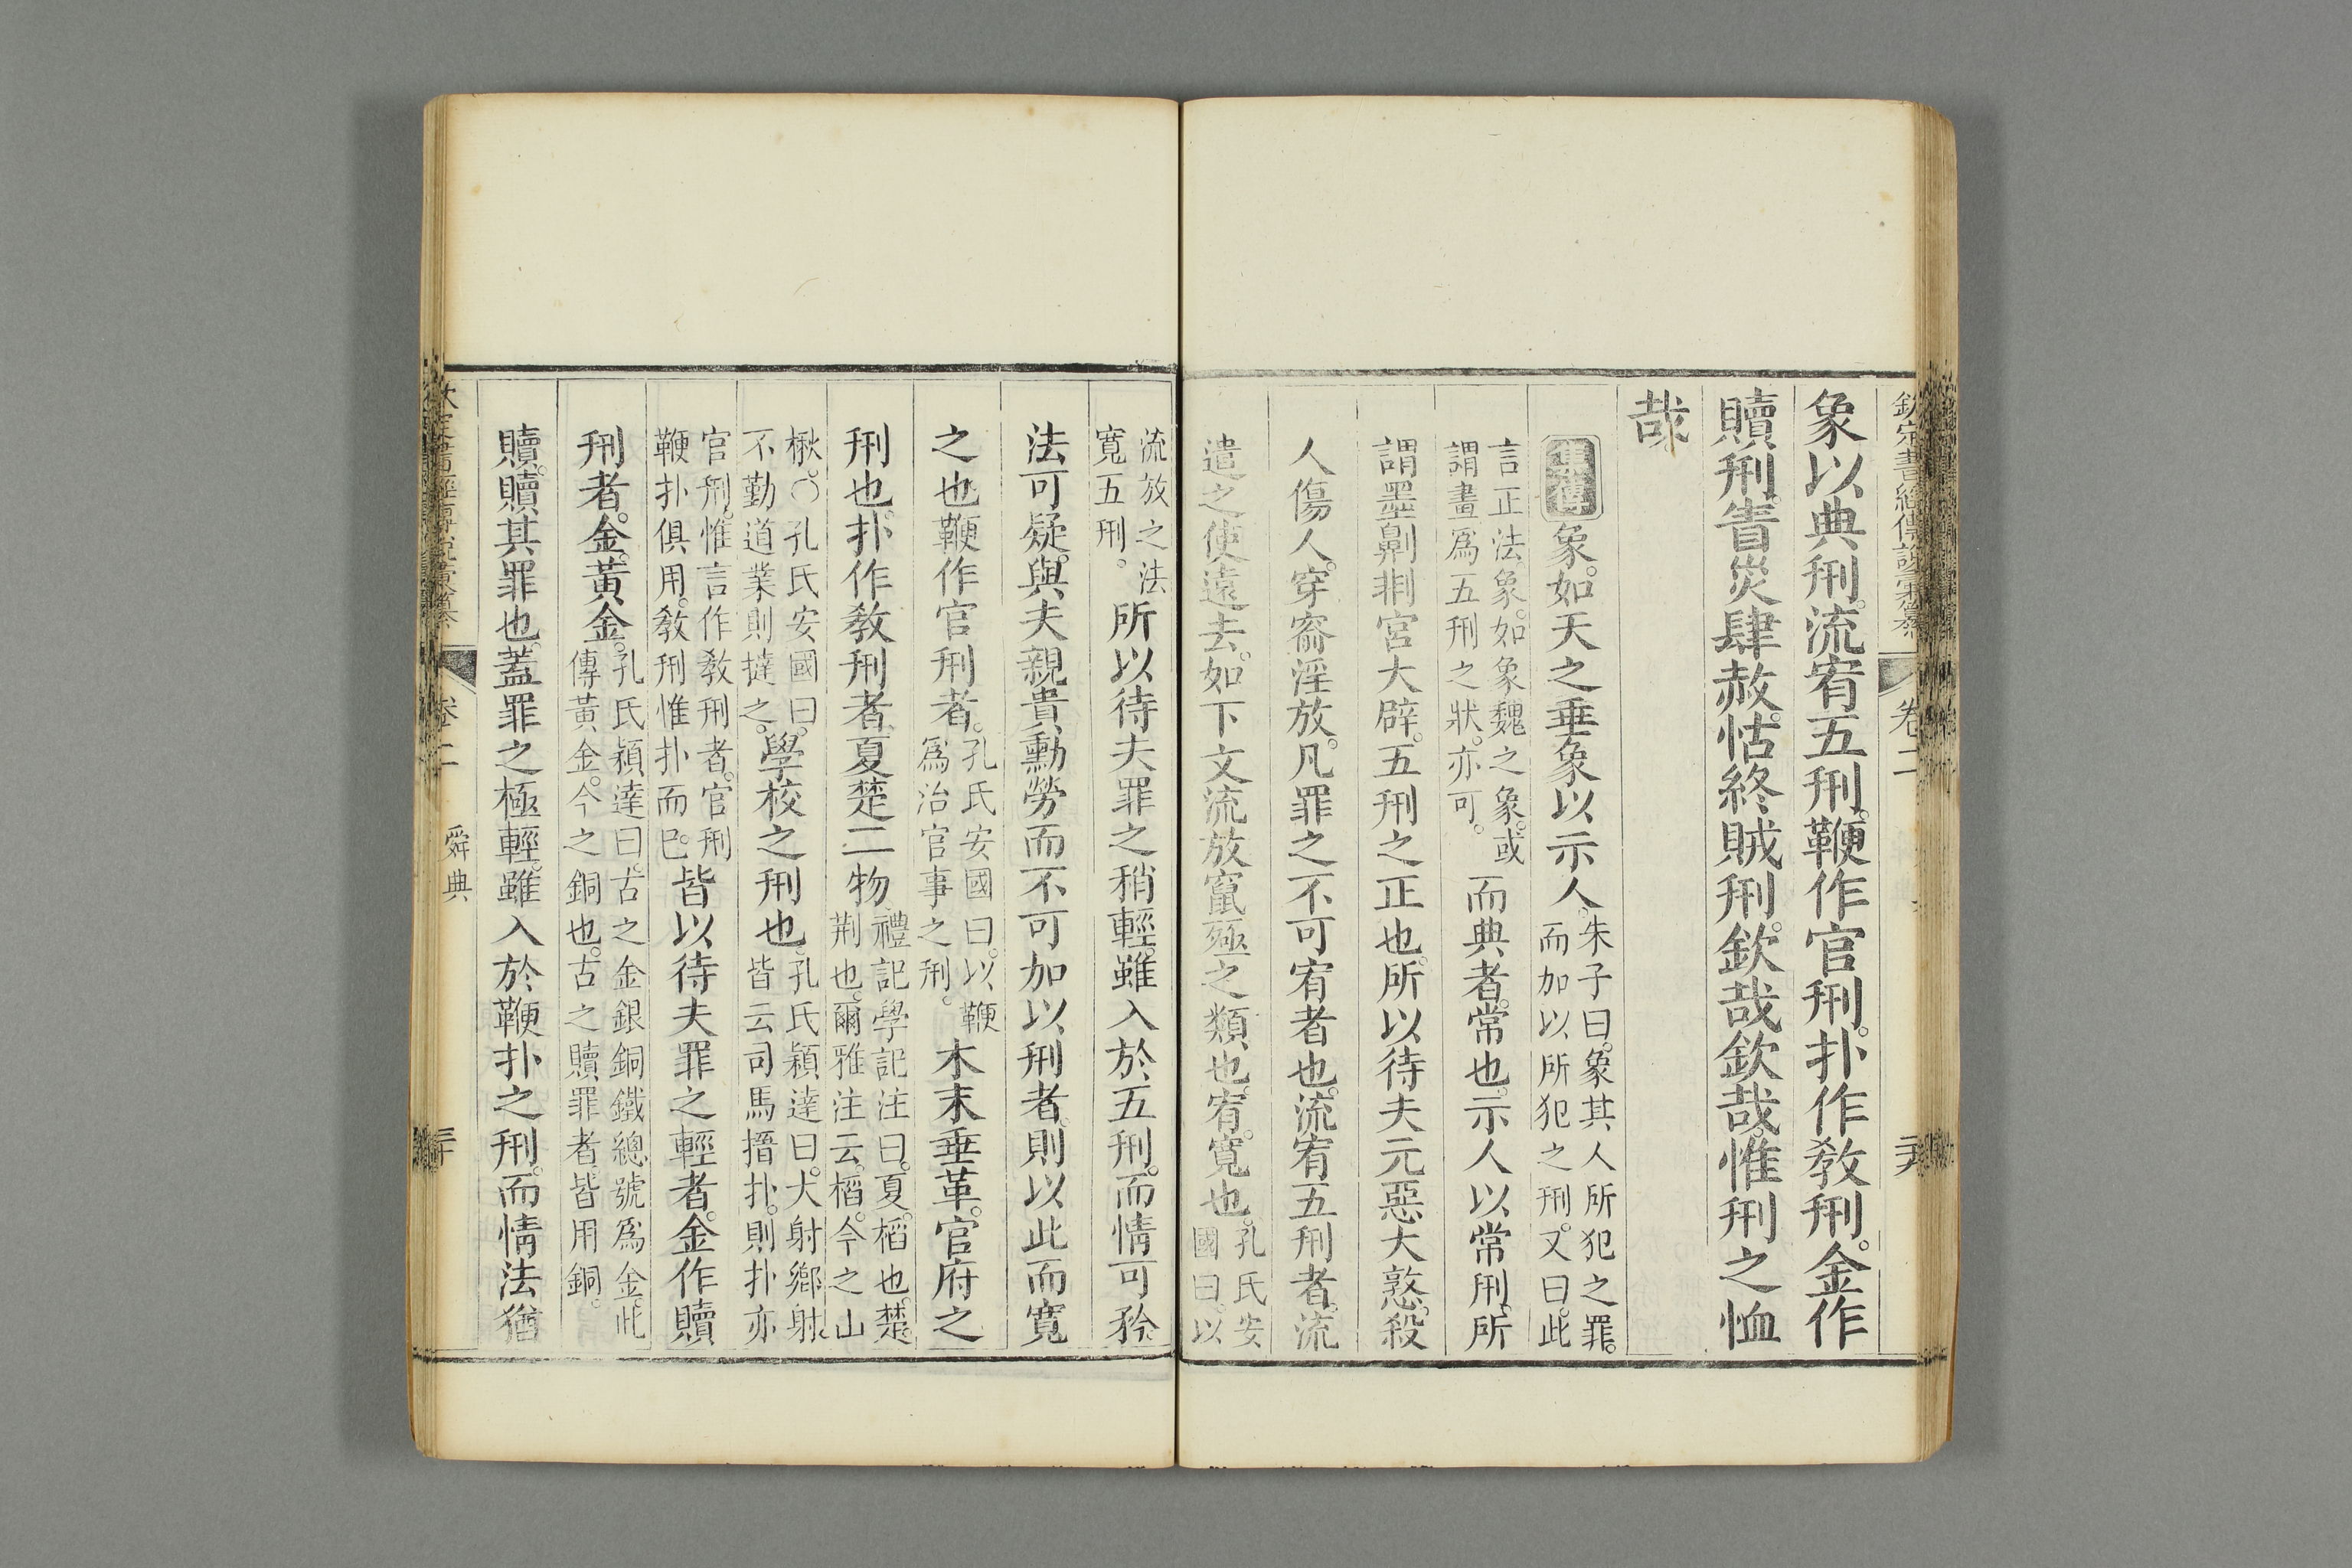 欽定書經傳說彙纂 卷二
象以典𠛬。流宥五𠛬。鞭作官𠛬。扑作敎𠛬。金作
贖𠛬。眚災肆赦。怙終賊𠛬。欽哉欽哉。惟𠛬之恤
哉。
集傳 象。如天之垂象以示人。朱子曰。象其人所犯之罪。而加以所犯之𠛬。又曰。此
言正法象。如象魏之象。或謂畫爲五𠛬之狀。亦可。而典者。常也。示人以常𠛬。所
謂墨劓剕宮大辟。五𠛬之正也。所以待夫元惡大憝。殺
人傷人。穿窬淫放。凡罪之不可宥者也。流宥五𠛬者。流
遣之使遠去。如下文流放竄殛之類也。宥。寬也。孔氏安國曰。以
流放之法寬五𠛬。所以待夫罪之稍輕。雖入於五𠛬。而情可矜。
法可疑。與夫親貴勳勞而不可加以𠛬者。則以此而寬
之也鞭作官𠛬者。孔氏安國曰。以鞭爲治官事之𠛬。木末垂革。官府之
𠛬也。扑作敎𠛬者。夏楚二物禮記學記注曰。夏。榎也。楚。荆也。爾雅注云。榎。今之山
楸。○孔氏安國曰。不勤道業則撻之。學校之𠛬也。孔氏穎達曰。大射鄉射。皆云司馬搢扑。則扑亦
官𠛬。惟言作敎𠛬者。官𠛬鞭扑俱用。敎𠛬惟扑而已。皆以待夫罪之輕者。金作贖
𠛬者。金。黃金。孔氏穎達曰。古之金銀銅鐵總號爲金。此傳黃金。今之銅也。古之贖罪者。皆用銅。
贖。贖其罪也。蓋罪之極輕。雖入於鞭扑之𠛬。而情法猶
卷二 舜典 三十